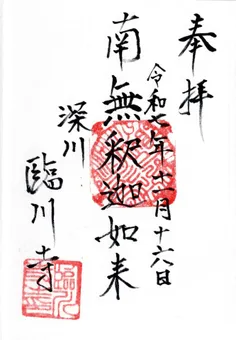 奉拝
令和七年十一月十六日
南無釈迦如来
深川
臨川寺